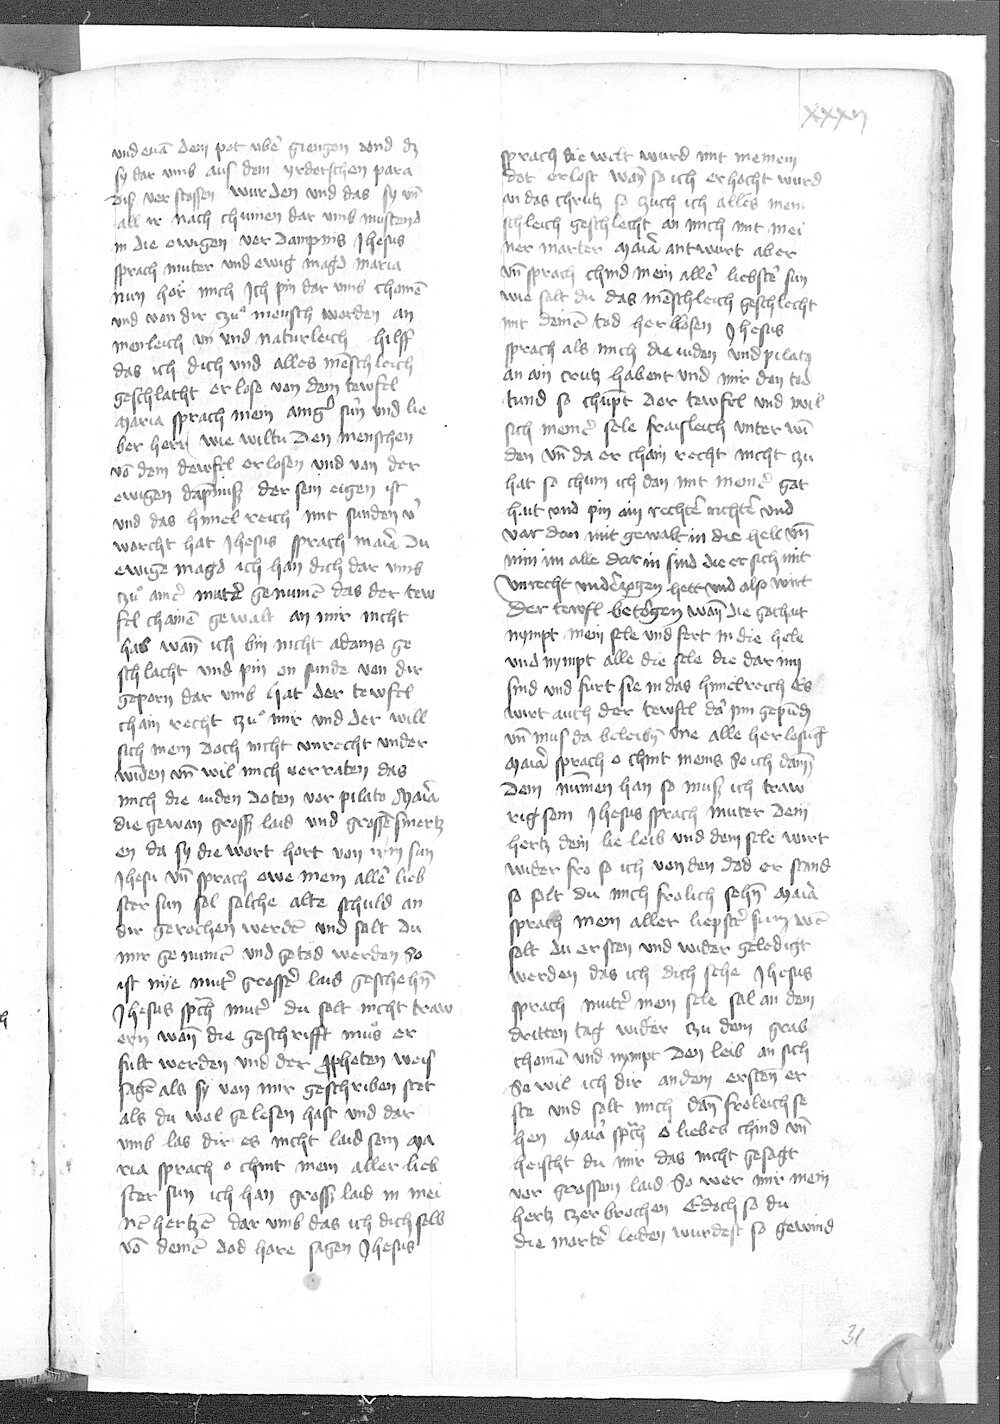 xxxij
und eua dem pot vber giengen vnd dz
sy dar vmb aus dem yrdenschen para
dis ver stossen wurden vnd das sy vn
all ir nach chumen dar vmb mustend
in die ewigen ver dampnis Jhesus
sprach muter vnd ewig magd maria
nun hor mich Ich pin dar vmb chomē
vnd von dir czu mensch worden an
menleich vn vnd naturleich hilff
das ich dich vnd alles mēschleich
geschlacht er lose von dem tewfel
Maria sprach mein ainigs sun vnd lie
ber herr wie wiltu den menschen
vō dem dewfel erlosen vnd von der
ewigen dāpmisz der sein eigen ist
vnd das himel reich mit sunden v
worcht hat Jhesus sprach maria du
ewige magd ich han dich dar vmb
czu ainer mater genumē das der tew
fel chainē gewalt an mir nicht
hab wan ich bin nicht adams ge
schlacht vnd pin on sunde von dir
geporn dar vmb hat der tewfel
chain recht czu mir vnd der will
sich mein doch nicht vnrecht vnder
winden vn wil mich verraten das
mich die iuden doten vor pilato Maria
die gewan gross laid vnd grosse smercz
en da sy die wort hort von irm sun
Jhesu vn sprach owe mein aller lieb
ster sun sol solche alte schuld an
dir gerochen werdē vnd solt du
mir genumē vnd getod werden So
ist mye muter grosser laid geschehn
Jhesus sprach muter du solt nicht traw
ern wan die geschrifft mus er
fult werden vnd der propheten weis
sagē als sy von mir geschriben stet
als du wol gelesen hast vnd dar
vmb las dir es nicht laid sein Ma
ria sprach o chint mein aller lieb
ster sun ich han gross laid in mei
nē hertzē dar vmb das ich dich selb
vō deinē dod hore sagen Jhesus
sprach die wilt wurd mit meinem
dot erlost wan so ich erhocht wurd
an das chrutz so zuch ich alles men
schleich geschlecht an mich mit mei
ner marter Maria antwurt aber
vn sprach chind mein aller liebster sun
wie solt du das mēschleich geschlecht
mit deinē tod herlosen Jhesus
sprach als mich die iuden vnd pilatz
an ain crutz habent vnd mir den tod
tund so chumpt der tewfel vnd wil
sich meiner sele fraisleich vnter win
den vn da er chain recht nicht czu
hat so chum ich dan mit meiner got
hait vnd pin ain rechter richter vnd
var dan mit gewalt in die hell vn
nim im alle der in sind die er sich mit
vnrecht vnderzogen hett vnd also wirt
der tewfl betrogen wan die gothait
nympt mein sele vnd fert in die hele
vnd nympt alle die sele die dar inn
sind vnd furt sie in das himelreich Es
wirt auch der tewfel dar inn gepūdn
vn mus da beleibn one alle herlosūg
Maria sprach o chint meins So ich dann
dein numen han so musz ich traw
rig sein Jhesus sprach muter dein
hertz dein lie leib vnd dein sele wirt
wider fro so ich von den dod er stand
so solt du mich frolich sehn Maria
sprach mein aller liepster sun wē
solt du ersten vnd wider geledigt
werden das ich dich sehe Jhesus
sprach muter mein sele sol an dem
dritten tag wider czu dem grab
chomē vnd nympt den leib an sich
So wil ich dir an dem ersten er
ste vnd solt mich dan froleich se
hen Maria sprach o liebes chind vn
heischt du mir das nicht gesagt
vor grossem laid So wer mir mein
hertz czerbrochen Edoch so du
die marter leiden wurdest so gewind
31